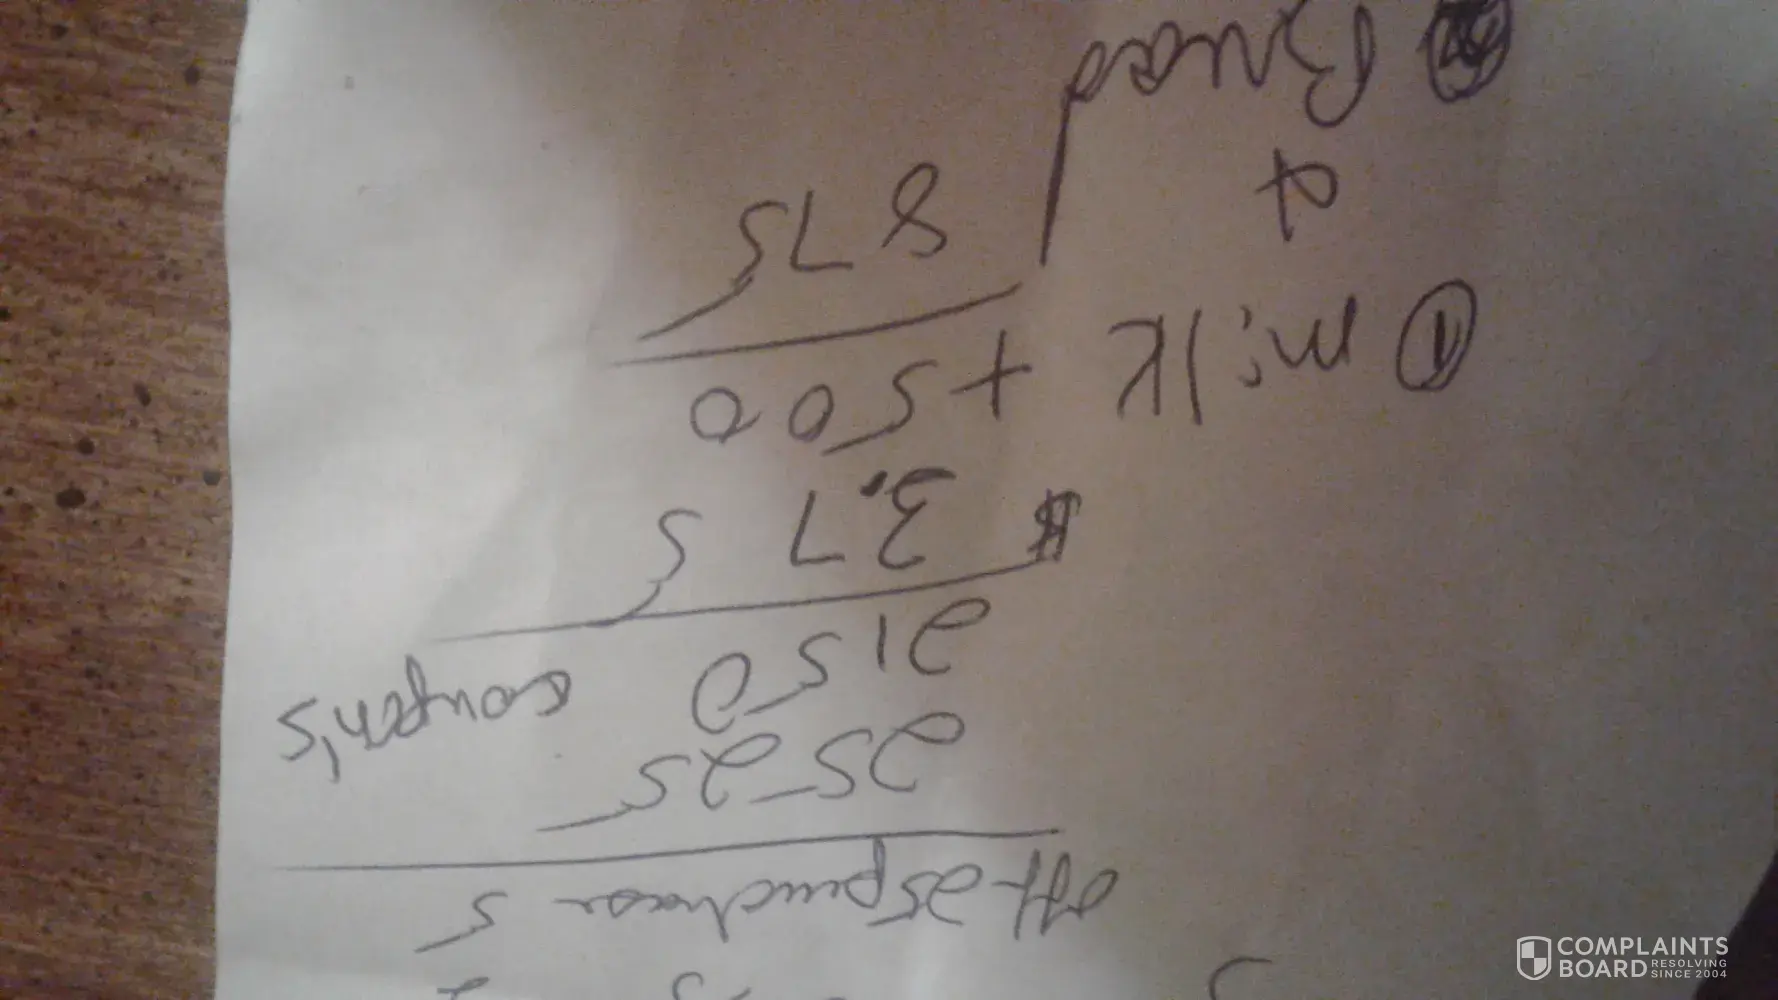 off-25 purchase 5
25-25
2150 coupon's
3.75
① milk +500
& 875
Bread
COMPLAINTS
BOARD RESOLVING SINCE 2004